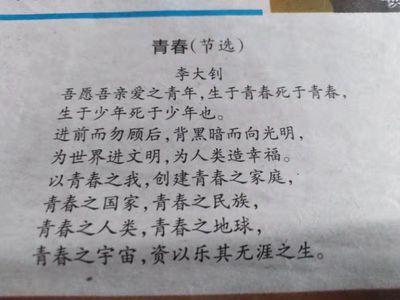 青春(节选)
李大钊
吾愿吾亲爱之青年,生于青春死于青春,
生于少年死于少年也。
进前而勿顾后,背黑暗而向光明,
为世界进文明,为人类造幸福。
以青春之我,创建青春之家庭,
青春之国家,青春之民族,
青春之人类,青春之地球,
青春之宇宙,资以乐其无涯之生。